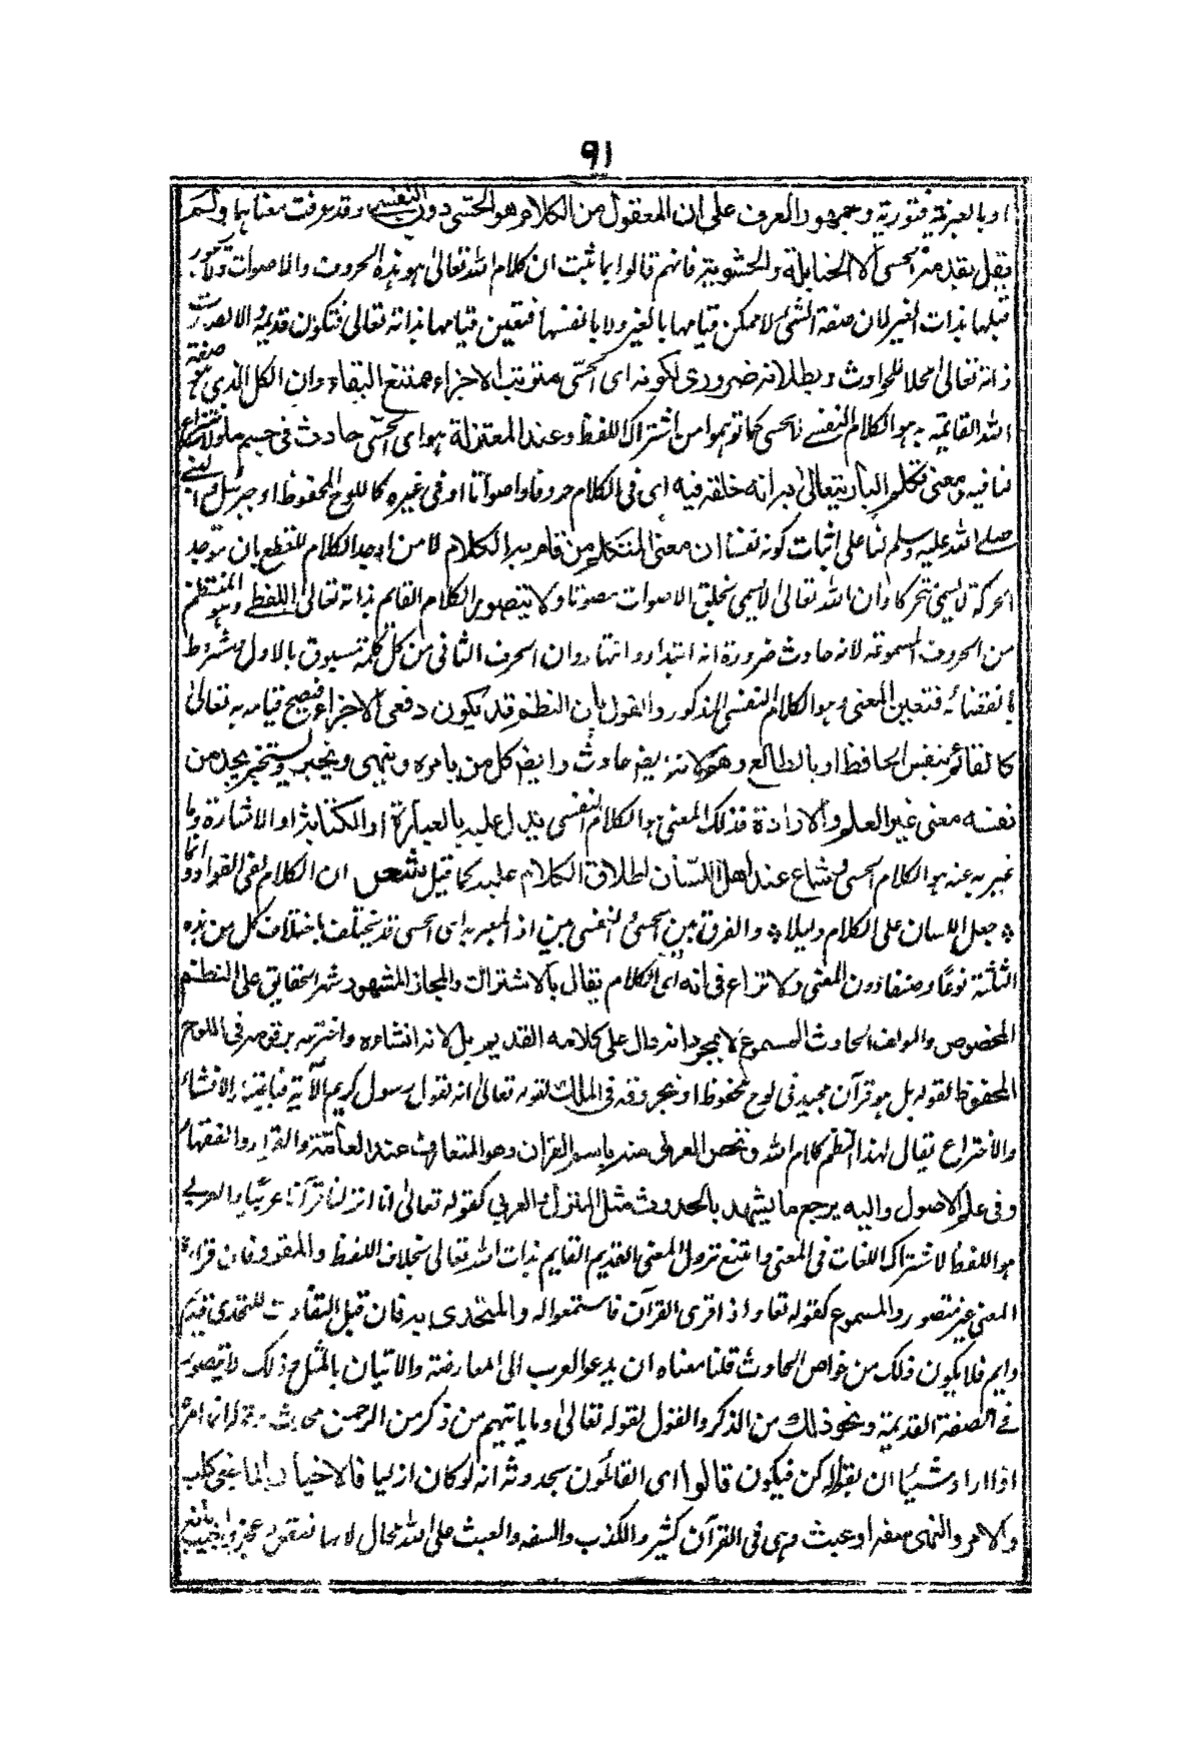 ٩١
او بالعبرية فتورية وجمهور العرف على ان المعقول من الكلام هو الحسى دون النفسى وقد عرفت معناهما ولم
يقل بقدم الحسى الا الحنابلة والحشوية فانهم قالوا بما ثبت ان كلام الله تعالى هو هذه الحروف والاصوات
قيامها بذات الغير لان صفة الشئ لا يمكن قيامها بالغير ولا بانفسها فتعين قيامها بذاته تعالى فتكون قديمة والا لصارت
ذاته تعالى محلا للحوادث وبطلانه ضرورى لكونه اى الحسى مترتب الاجزاء ممتنع البقاء وان الكل الذى هو صفة
الله القائمة به هو الكلام النفسى لا الحسى كما توهموا من اشتراك اللفظ وعند المعتزلة هو اى الحسى حادث فى جسم
فيه ومعنى تكلم البارى تعالى به انه خلقه فيه اى فى الكلام حروفا واصواتا او فى غيره كاللوح المحفوظ او جبرئيل او النبى
صلى الله عليه وسلم لنا على اثبات كونه نفسيا ان معنى المتكلم من قام به الكلام لا من اوجد الكلام للقطع بان موجد
الحركة لا يسمى متحركا وان الله تعالى لا يسمى بخلق الاصوات مصوتا ولا يتصور الكلام القائم بذاته تعالى اللفظى وهو المنتظم
من الحروف المسموعة لانه حادث ضرورة انه ابتداء وانتهاء وان الحرف الثانى من كل كلمة مسبوق بالاول مشروط
بانقضائه فتعين المعنى وهو الكلام النفسى المذكور والقول بان النظم قد يكون دفعى الاجزاء فيصح قيامه به تعالى
كالقائم بنفس الحافظ او بالطالع وهم لانه ايضا حادث وايضا كل من يامر وينهى ويخبر يستخبر يجد من
نفسه معنى غير العلم والارادة فذلك المعنى هو الكلام النفسى يدل عليه بالعبارة او الكتابة او الاشارة وما
عبر به عنه هو الكلام الحسى وشاع عند اهل اللسان اطلاق الكلام عليه كما قيل شعر ان الكلام لفى الفؤاد وانما
جعل اللسان على الكلام دليلا والفرق بين الحسى والنفسى بين اذ المعبر به اى الحسى قد يختلف باختلاف كل من هذه
الثلثة نوعا وصنفا دون المعنى ولا نزاع فى انه اى الكلام يقال بالاشتراك والمجاز المشهور شهرة الحقايق على النظم
المخصوص والمولف الحادث المسموع لا بمجرد انه دال على كلامه القديم بل لانه انشاءه واخترعه برقومه فى اللوح
المحفوظ لقوله بل هو قرآن مجيد فى لوح محفوظ او بحروفه فى الملك لقوله تعالى انه لقول رسول كريم الآية الانشاء
والاختراع يقال لهذا النظم كلام الله ويخص العربى منه باسم القران وهو المتعارف عند العامة والقراء والفقهاء
وفى علم الاصول واليه يرجع ما يشهد بالحدوث مثل المنزل العربى كقوله تعالى انا انزلناه قرآنا عربيا والعربى
هو اللفظ لاشتراك اللغات فى المعنى وامتنع نزول المعنى القديم القايم بذات الله تعالى بخلاف اللفظ والمقروء فان قراءة
المعنى غير متصور والمسموع كقوله تعا واذا قرئ القرآن فاستمعوا له والمتحدى به فان قبل التفاوت للتحدى قديم
دايم فلا يكون ذلك من خواص الحادث قلنا معناه ان يدعو العرب الى المعارضة والاتيان بالمثل وذلك لا يتصور
فى الصفة القديمة ونحو ذلك من الذكر والقول لقوله تعالى وما ياتيهم من ذكر من الرحمن محدث وقوله انما امره
اذا اراد شيئا ان يقول له كن فيكون قالوا اى القائلون بحدوثه انه لو كان ازليا فالاخبار بالماضى كذب
والامر والنهى سفه او عبث وهى فى القرآن كثير والكذب والسفه والعبث على الله محال لانها نقص